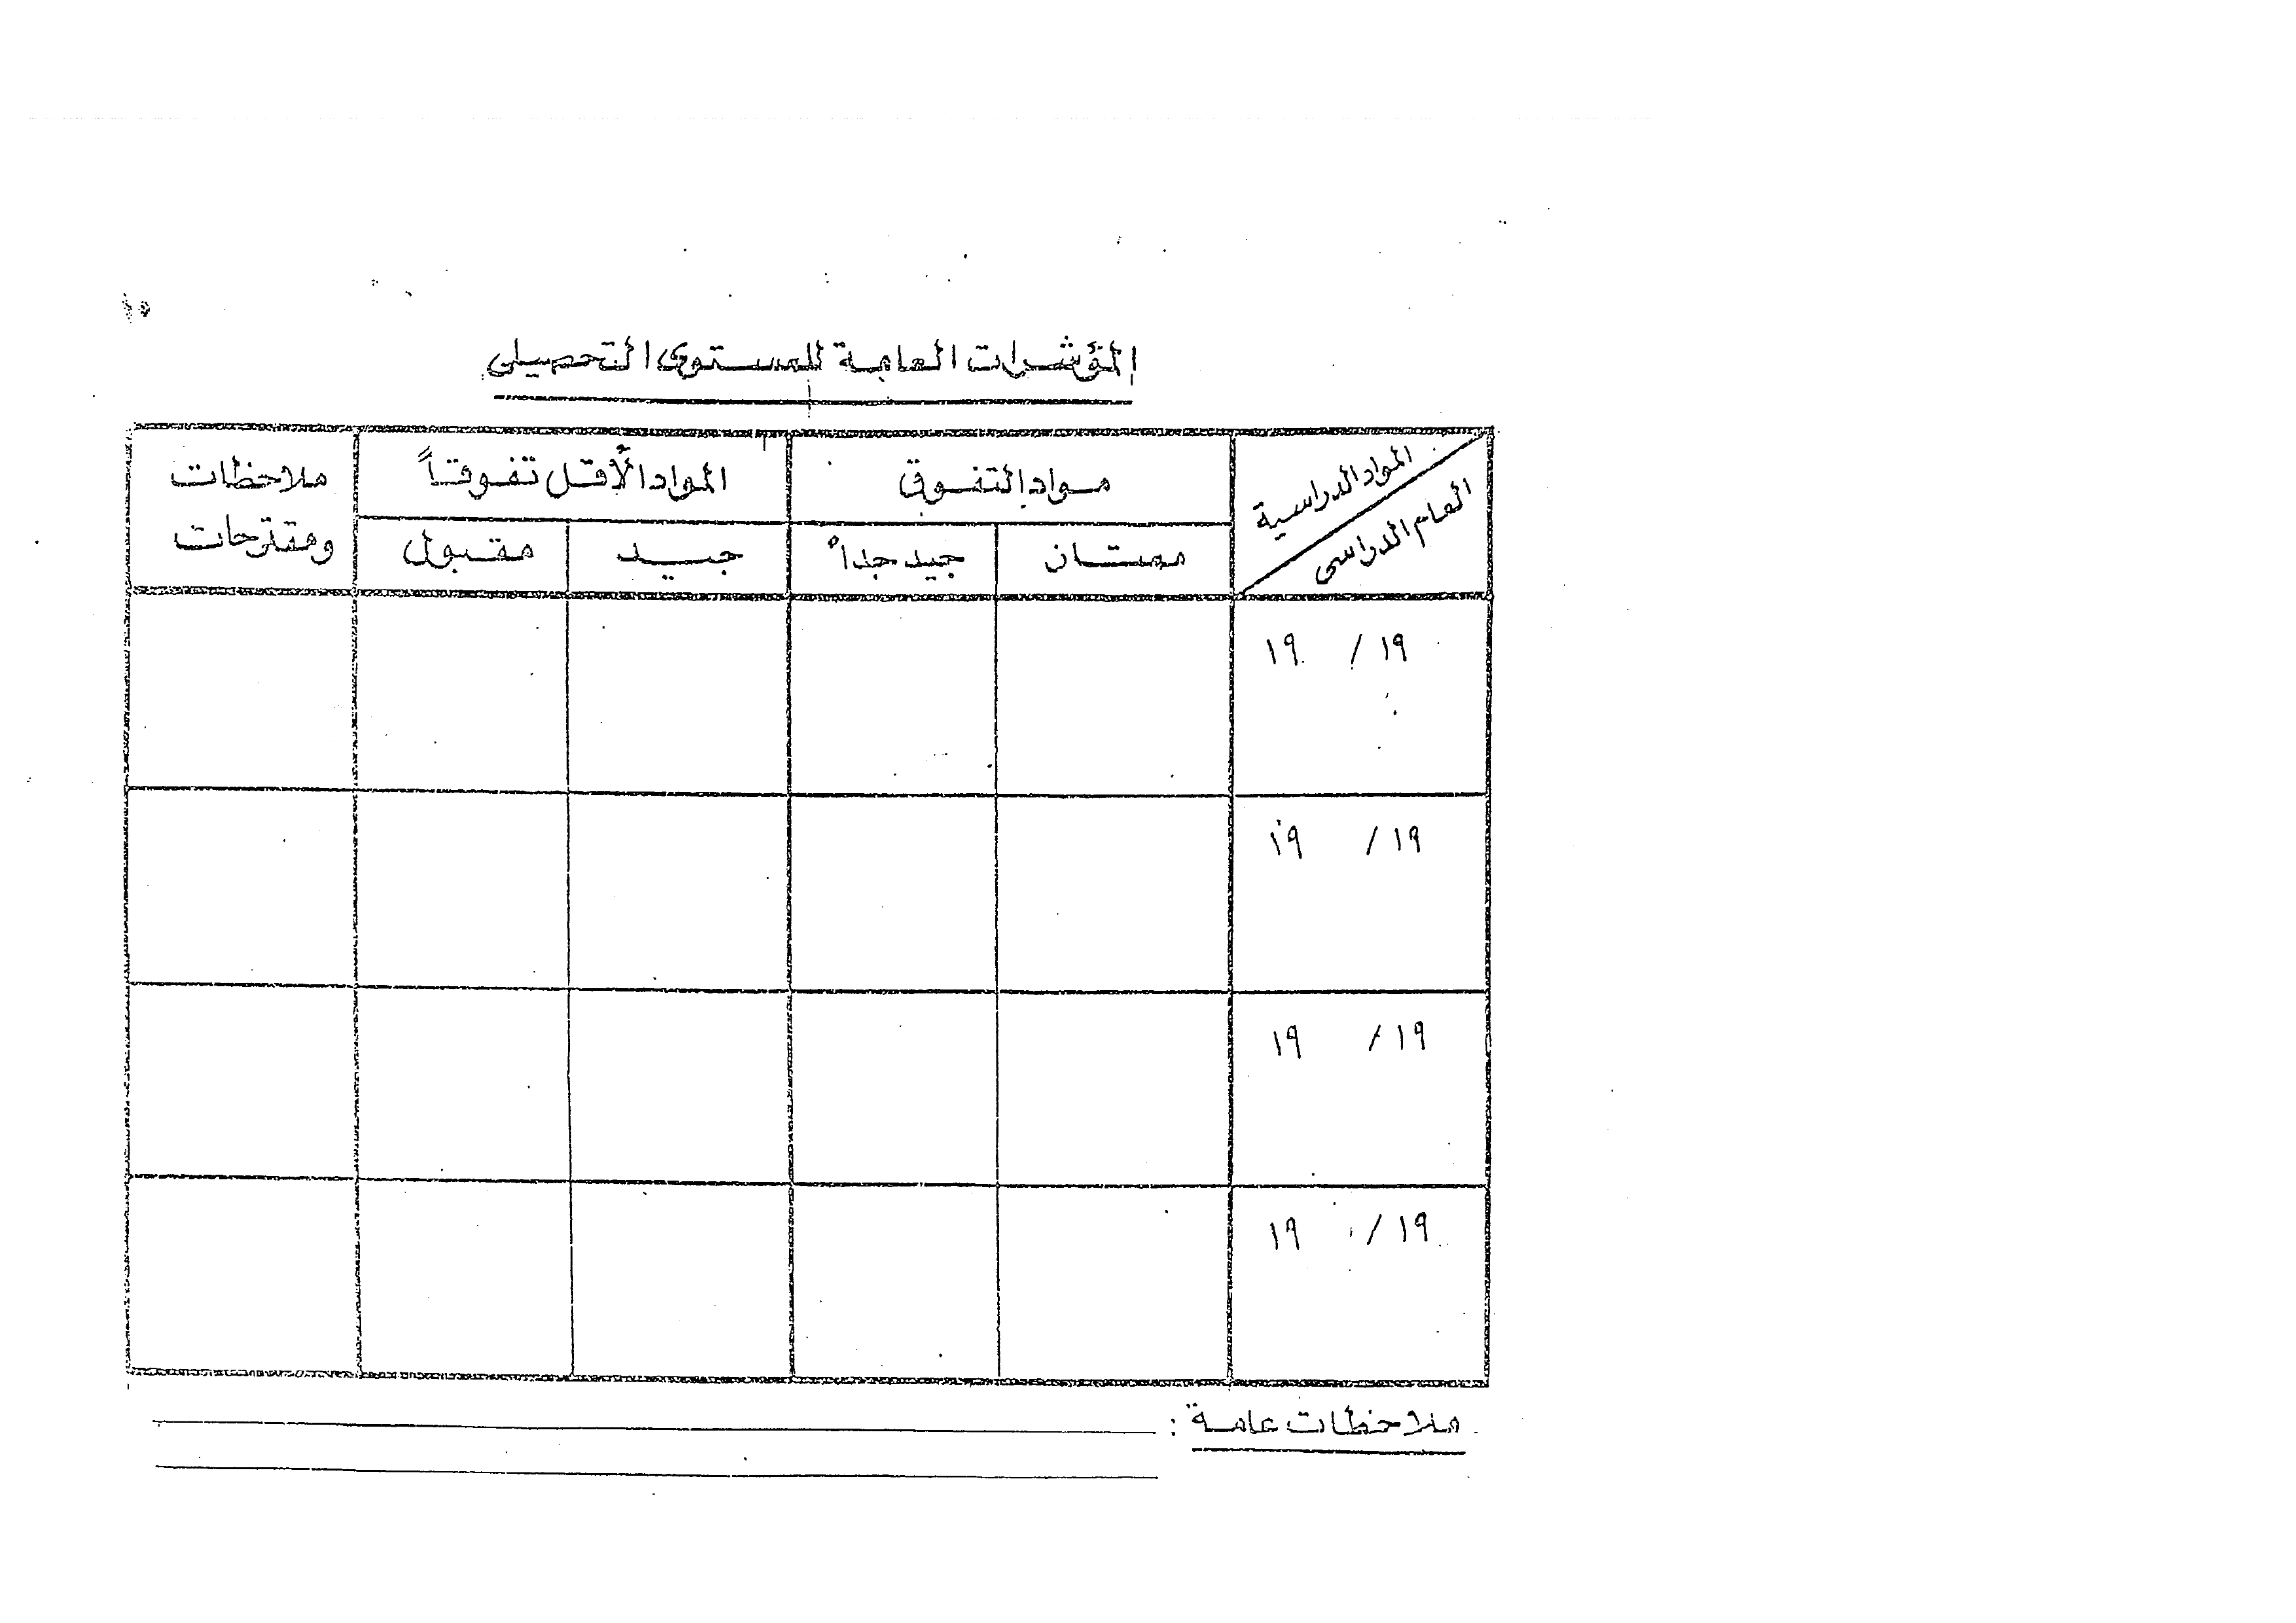 المؤشرات العامة للمستوى التحصيلى
المواد الدراسية
العام الدراسى
مواد التفوق
المواد الأقل تفوقاً
ملاحظات
ومقترحات
ممتاز
جيد جداً
جيد
مقبول
١٩ / ١٩
١٩ / ١٩
١٩ / ١٩
١٩ / ١٩
ملاحظات عامة :